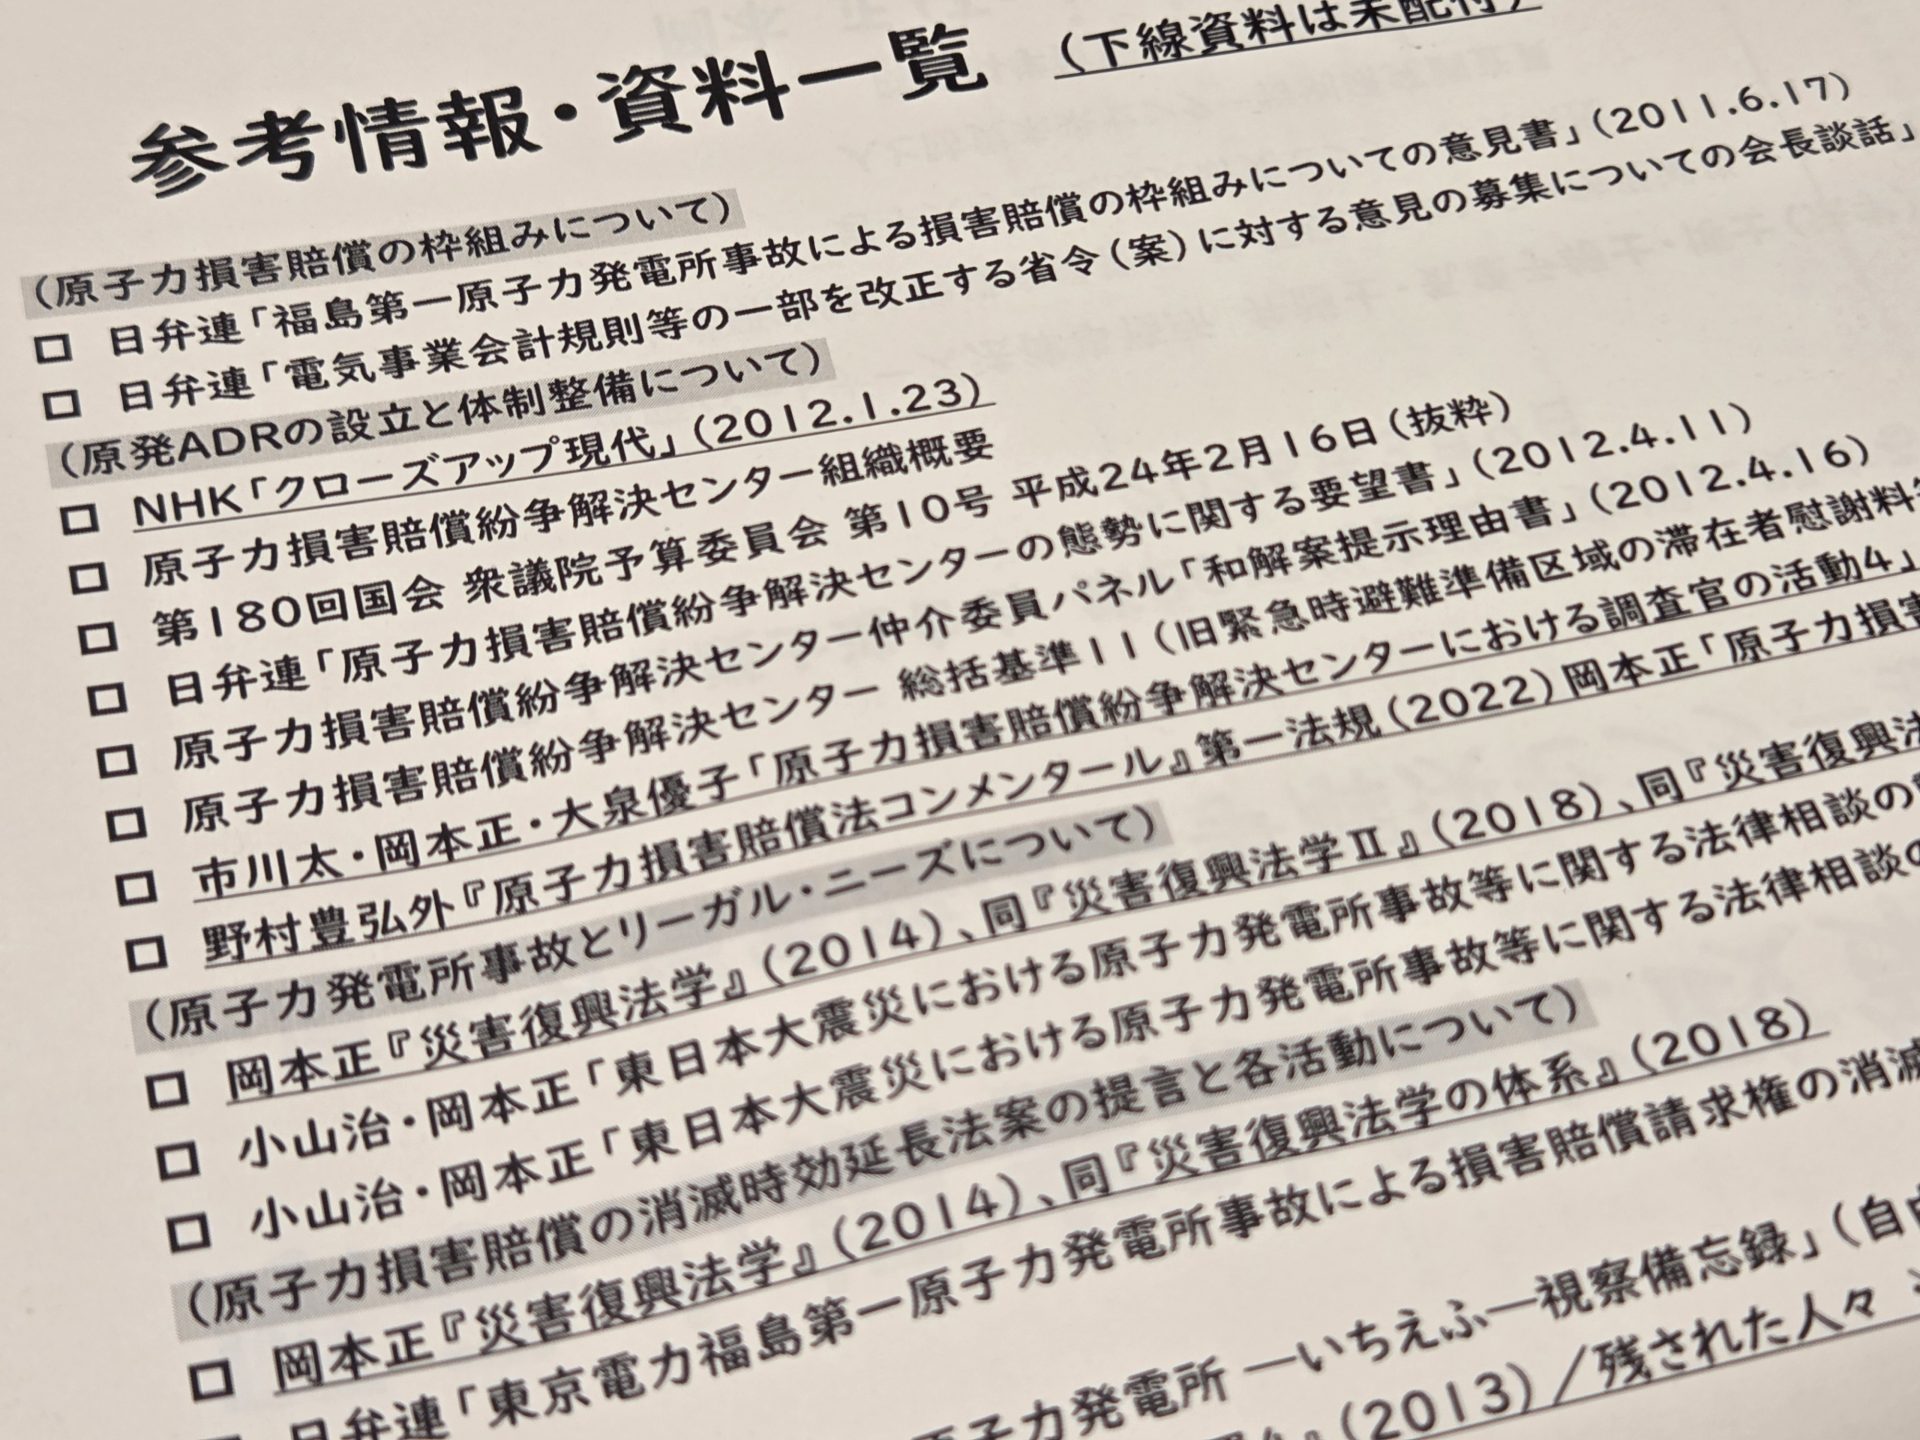 参考情報・資料一覧 (下線資料は未配付)
(原子力損害賠償の枠組みについて)
□ 日弁連「福島第一原子力発電所事故による損害賠償の枠組みについての意見書」(2011.6.17)
□ 日弁連「電気事業会計規則等の一部を改正する省令(案)に対する意見の募集についての会長談話」
(原発ADRの設立と体制整備について)
□ NHK「クローズアップ現代」(2012.1.23)
□ 原子力損害賠償紛争解決センター組織概要
□ 第180回国会 衆議院予算委員会 第10号 平成24年2月16日(抜粋)
□ 日弁連「原子力損害賠償紛争解決センターの態勢に関する要望書」(2012.4.11)
□ 原子力損害賠償紛争解決センター仲介委員パネル「和解案提示理由書」(2012.4.16)
□ 原子力損害賠償紛争解決センター 総括基準11(旧緊急時避難準備区域の滞在者慰謝料
□ 市川太・岡本正・大泉優子「原子力損害賠償紛争解決センターにおける調査官の活動4」
□ 野村豊弘外『原子力損害賠償法コンメンタール』第一法規(2022)岡本正「原子力損害
(原子力発電所事故とリーガル・ニーズについて)
□ 岡本正『災害復興法学』(2014)、同『災害復興法学Ⅱ』(2018)、同『災害復興法
□ 小山治・岡本正「東日本大震災における原子力発電所事故等に関する法律相談の
□ 小山治・岡本正「東日本大震災における原子力発電所事故等に関する法律相談の
(原子力損害賠償の消滅時効延長法案の提言と各活動について)
□ 岡本正『災害復興法学』(2014)、同『災害復興法学の体系』(2018)
日弁連「東京電力福島第一原子力発電所事故による損害賠償請求権の消滅
原子力発電所 ―いちえふ―視察備忘録」(自由
(2013)/残された人々